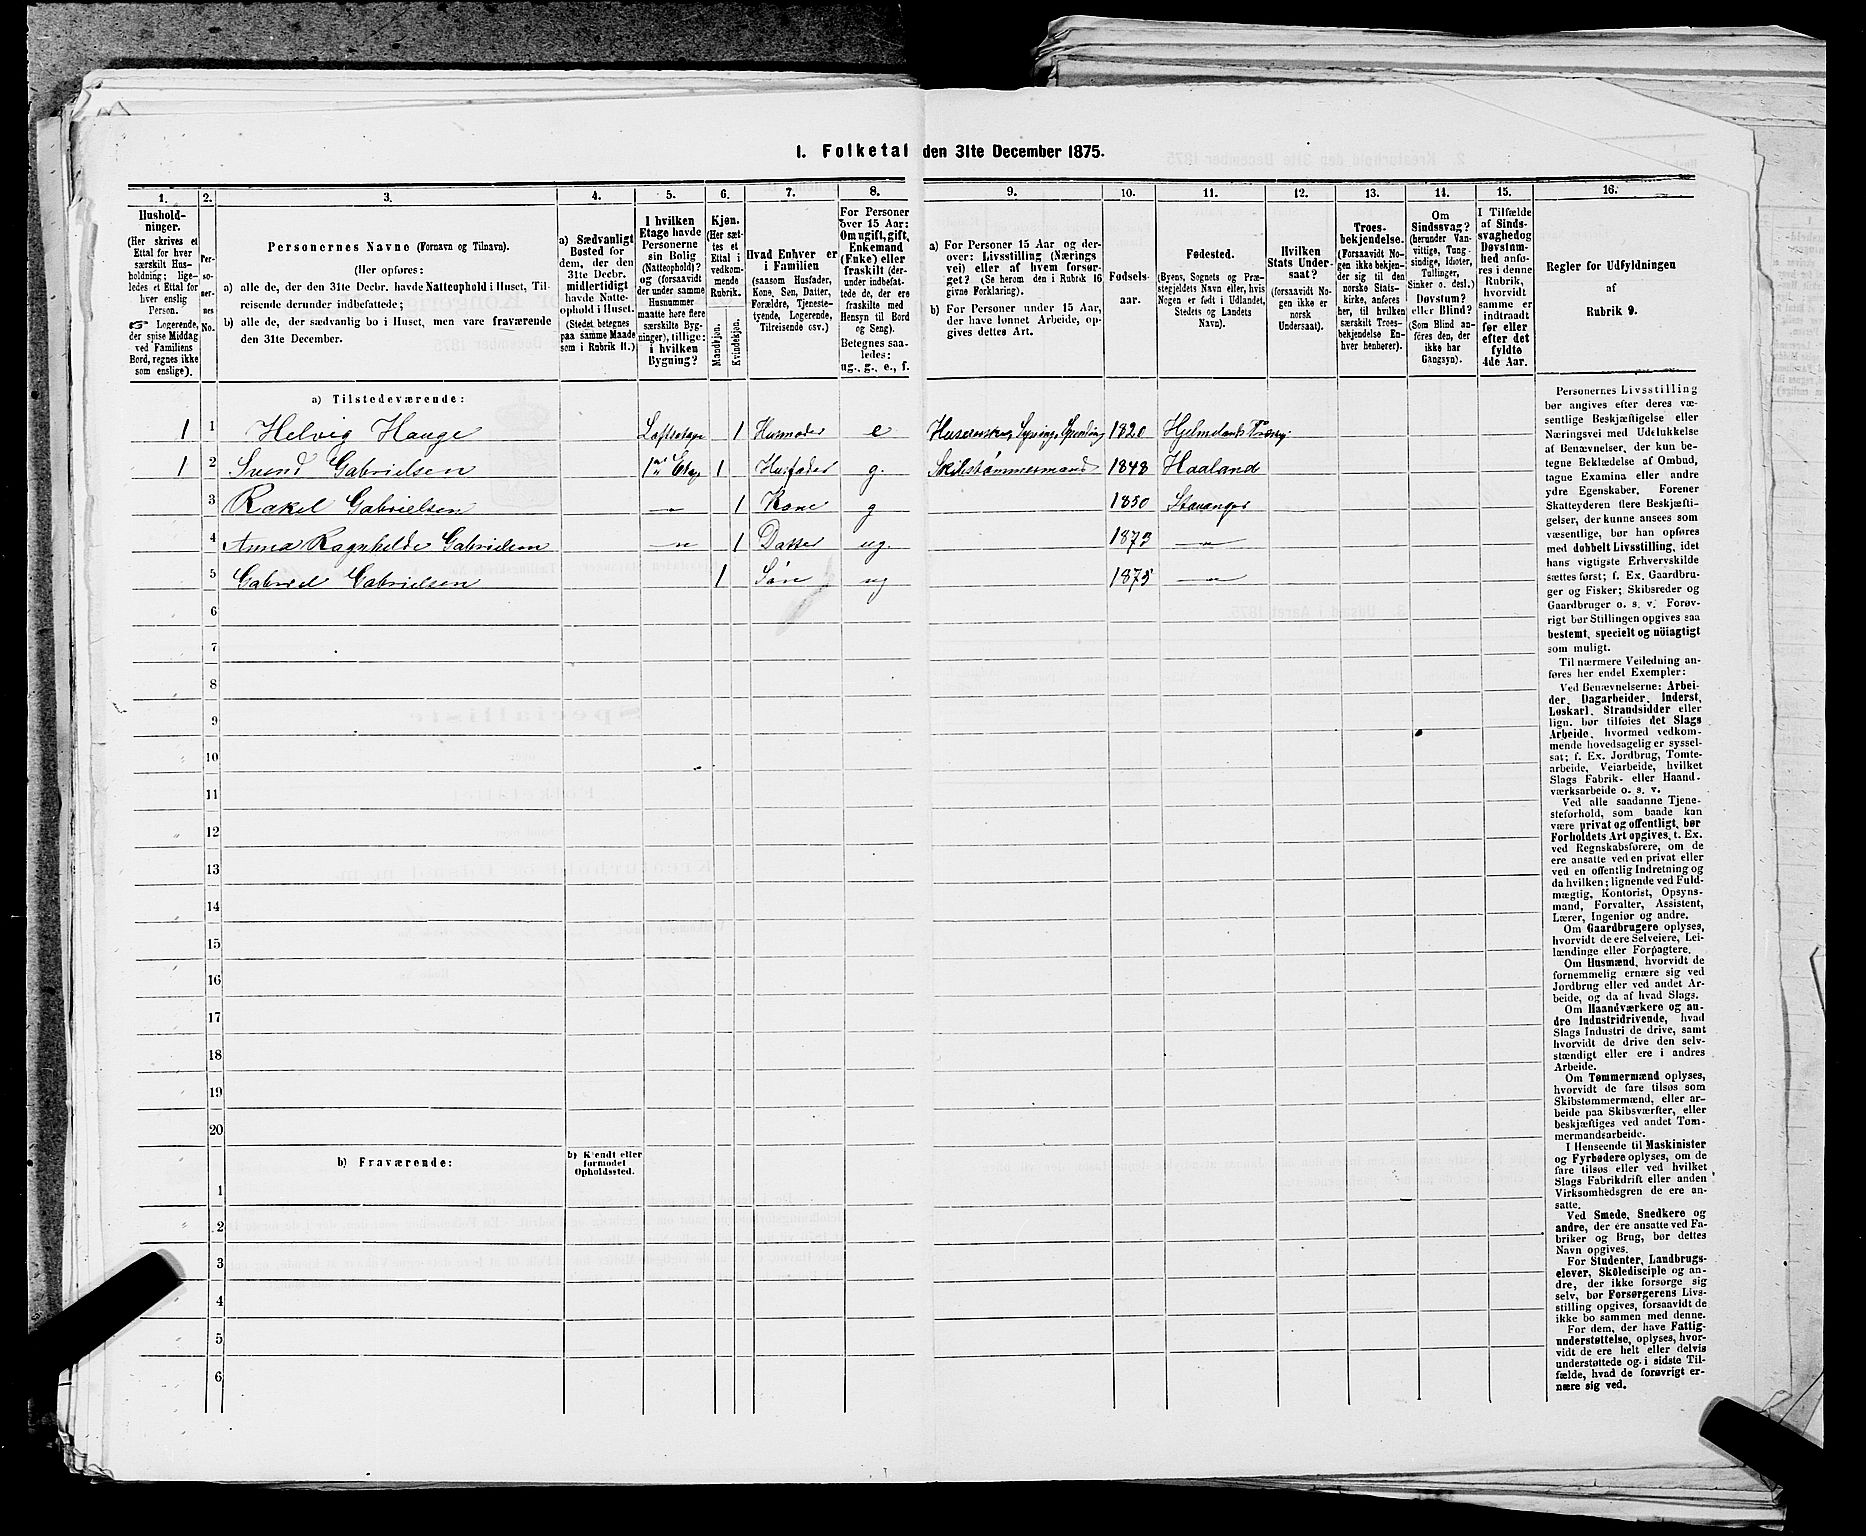 1. Folketal den 31te December 1875.
1. 2. 3. 4. 5. 6. 7. 8. 9. 10. 11. 12. 13. 14. 15. 16.
Hushold-
ninger.
(Her skrives et
Ettal for hver
særskilt Hus-
holdning; lige-
ledes et Ettal for
hver enslig
Person.
☞ Logerende,
der spise Middag
ved Familiens
Bord, regnes ikke
som enslige).
Per-
so-
ner-
nes
No.
Personernes Navne (Fornavn og Tilnavn).
(Her opføres:
a) alle de, der den 31te Decbr. havde Natteophold i Huset, Til-
reisende derunder indbefattede;
b) alle de, der sædvanlig bo i Huset, men vare fraværende
den 31te December.
a) Sædvanligt
Bosted for
dem, der den
31te Decbr.
midlertidigt
havde Natte-
ophold i Huset.
(Stedet betegnes
paa samme Maade
som i Rubrik 11.)
I hvilken
Etage havde
Personerne
sin Bolig
(Natteophold)?
og (forsaavidt
der under samme
Husnummer
maatte høre flere
særskilte Byg-
ninger), tillige:
i hvilken
Bygning?
Kjøn.
(Her sæt-
tes et
Ettal i
vedkom-
mende
Rubrik.
Mandkjøn.
Kvindekjøn.
Hvad Enhver er
i Familien
(saasom Husfader,
Kone, Søn, Datter,
Forældre, Tjeneste-
tyende, Logerende,
Tilreisende osv.)
For Personer
over 15 Aar:
Om ugift, gift,
Enkemand
(Enke) eller
fraskilt (der-
under indbefat-
tede de, der ere
fraskilte med
Hensyn til Bord
og Seng).
Betegnes saa-
ledes:
ug., g., e., f.
a) For Personer 15 Aar og der-
over: Livsstilling (Nærings
vei) eller af hvem forsør-
get? (Se herom den i Rubrik 16
givne Forklaring).
b) For Personer under 15 Aar,
der have lønnet Arbeide, op-
gives dettes Art.
Fødsels-
aar.
Fødested.
(Byens, Sognets og Præ-
stegjeldets Navn eller, hvis
Nogen er født i Udlandet,
Stedets og Landets
Navn).
Hvilken
Stats Under-
saat?
(forsaavidt No-
gen ikke er
norsk
Undersaat).
Troes-
bekjendelse.
(Forsaavidt No-
gen ikke bekjen-
der sig til den
norske Stats-
kirke, anføres
her, til hvilken
særskilt Troes-
bekjendelse En-
hver henhører).
Om
Sindssvag?
(herunder Van-
vittige, Tung-
sindige, Idioter,
Tullinger,
Sinker o. desl.)
Døvstum?
eller Blind?
(Som Blind an-
føres den, der
ikke har
Gangsyn).
I Tilfælde
af Sinds-
svaghed og
Døvstum-
hed anfø-
res i denne
Rubrik,
hvorvidt
samme er
indtraadt
før eller
efter det
fyldte
4de Aar.
Regler for Udfyldningen
af
Rubrik 9.
a) Tilstedeværende:
1 1 Helvig Hauge Loftsetage 1 Husmoder e 1820 Hjelmelands
1 2 Svend Gabrielsen 1ste Etag 1 Husfader g. Skibstømmermand 1848 Haaland
3 Rakel Gabrielsen " 1 Kone g 1850 Stavanger
4 Anna Ragnhilde Gabrielsen " 1 Datter ug. 1873 "
5 Gabriel Gabrielsen 1 Søn ug 1875 "
6
7
8
9
10
11
12
13
14
15
16
17
18
19
20
b) Fraværende:
b) Kjendt eller
formodet
Opholdssted.
1
2
3
4
5
6
Personernes Livsstilling
bør angives efter deres væ-
sentlige Beskjæftigelse eller
Næringsvei med Udelukkelse
af Benævnelser, der kun be-
tegne Beklædelse af Ombud,
tagne Examina eller andre
ydre Egenskaber. Forener
Skatteyderen flere Beskjæfti-
gelser, der kunne ansees som
væsentlige, bør han opføres
med dobbelt Livsstilling, idet
hans vigtigste Erhvervskilde
sættes først; f. Ex. Gaardbru-
ger og Fisker; Skibsreder og
Gaardbruger o. s. v. Forøv-
rigt bør Stillingen opgives saa
bestemt, specielt og nöiagtigt
som muligt.
Til nærmere Veiledning an-
føres her endel Exempler:
Ved Benævnelserne: Arbei-
der, Dagarbeider, Inderst,
Løskarl, Strandsidder eller
lign. bør tilføies det Slags
Arbeide, hvormed vedkom-
mende hovedsagelig er syssel-
sat; f. Ex. Jordbrug, Tomte-
arbeide, Veiarbeide, hvilket
Slags Fabrik- eller Haand-
værksarbeide o. s. v.
Ved alle saadanne Tjene-
steforhold, som baade kan
være privat og offentligt, bør
Forholdets Art opgives, t. Ex.
ved Regnskabsførere, om de
ere ansatte ved en privat eller
ved en offentlig Indretning og
da hvilken; lignende ved Fuld-
mægtig, Kontorist, Opsyns-
mand, Forvalter, Assistent,
Lærer, Ingeniør og andre.
Om Gaardbrugere oplyses,
hvorvidt de ere Selveiere, Lei-
lændinge eller Forpagtere.
Om Husmænd, hvorvidt de
fornemmelig ernære sig ved
Jordbrug eller ved andet Ar-
beide, og da af hvad Slags.
Om Haandværkere og an-
dre Industridrivende, hvad
Slags Industri de drive, samt
hvorvidt de drive den selv-
stændigt eller ere i andres
Arbeide.
Om Tømmermænd oplyses,
hvorvidt de fare tilsøs som
Skibstømmermænd, eller ar-
beide paa Skibsværfter, eller
beskjæftiges ved andet Tøm-
mermandsarbeide.
I Henseende til Maskinister
og Fyrbødere oplyses, om de
fare tilsøs eller ved hvilket
Slags Fabrikdrift eller anden
Virksomhedsgren de ere an-
satte.
Ved Smede, Snedkere og
andre, der ere ansatte ved Fa-
briker og Brug, bør dettes
Navn opgives.
For Studenter, Landbrugs-
elever, Skoledisciple og an-
dre, der ikke forsørge sig
selv, bør Forsørgerens Livs-
stilling opgives, forsaavidt de
ikke bo sammen med denne.
For dem, der have Fattig-
understøttelse, oplyses, hvor-
vidt de ere helt eller delvis
understøttede og i sidste Til-
fælde, hvad de forøvrigt er-
nære sig ved.